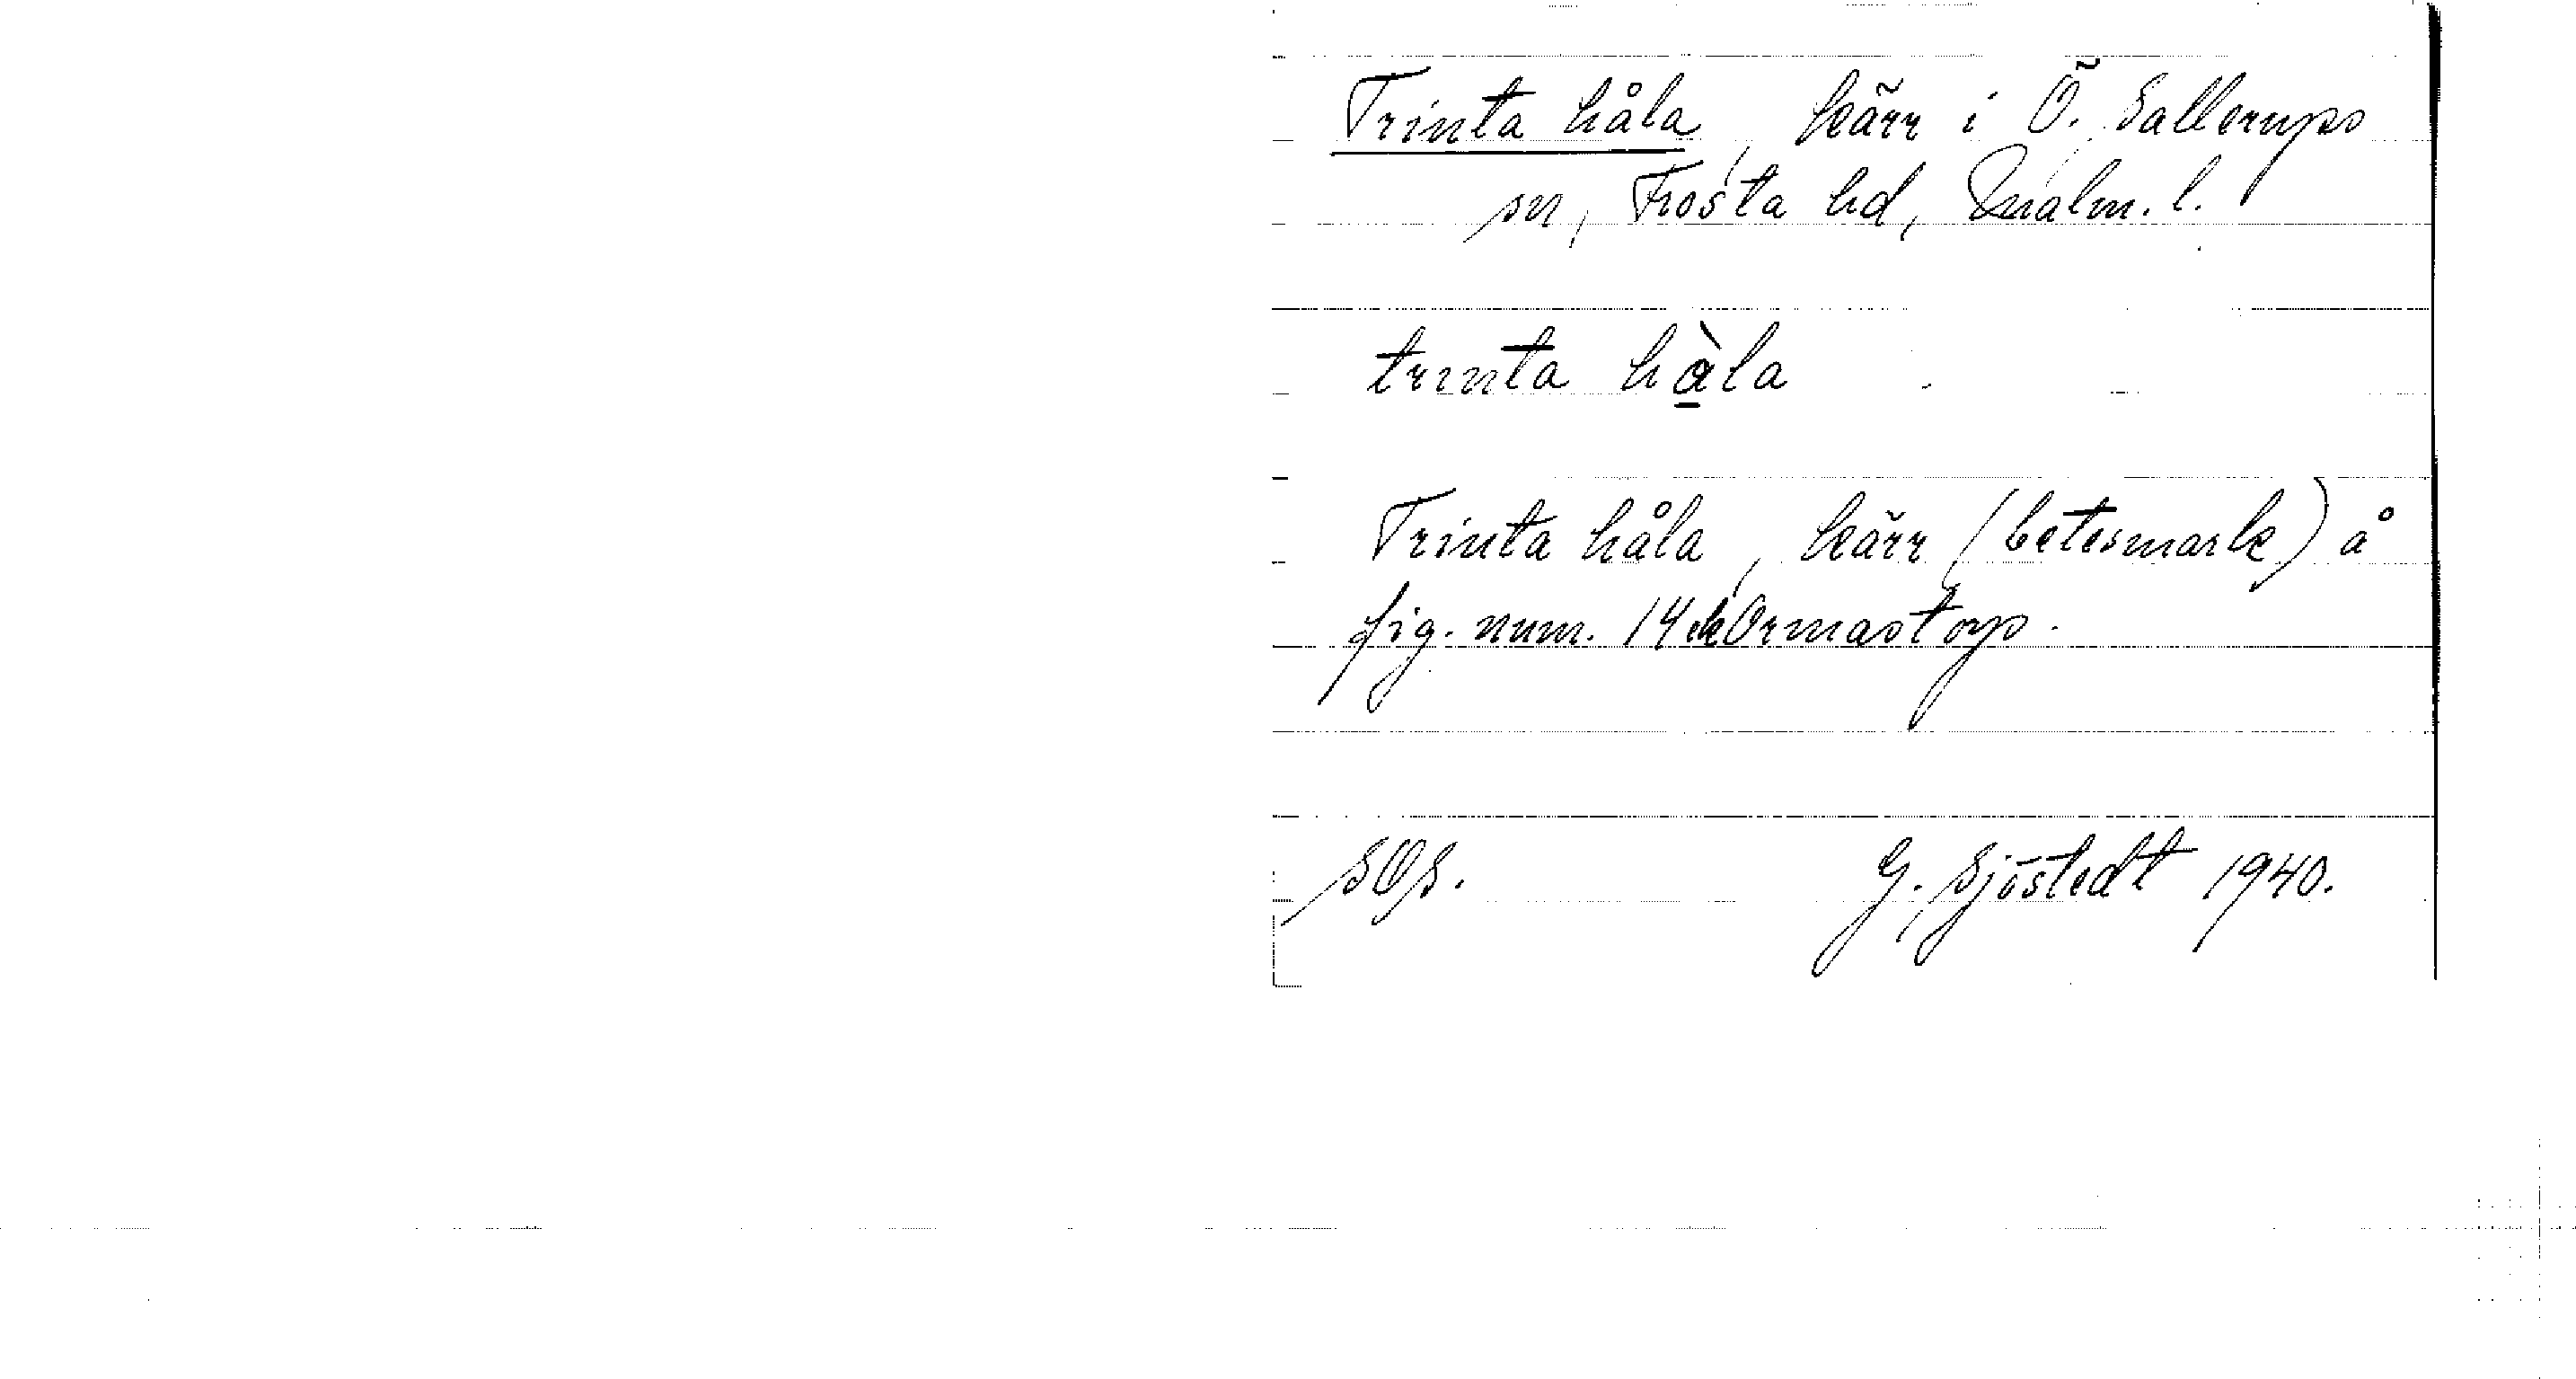 Trinta håla, kärr i Ö. Sallerups
sn, Frosta hd, Malm. l.
trınta hàla
Trinta håla, kärr (betesmark) å
fig. num. 14 Ormastorp.
SOS.
G. Sjöstedt 1940.